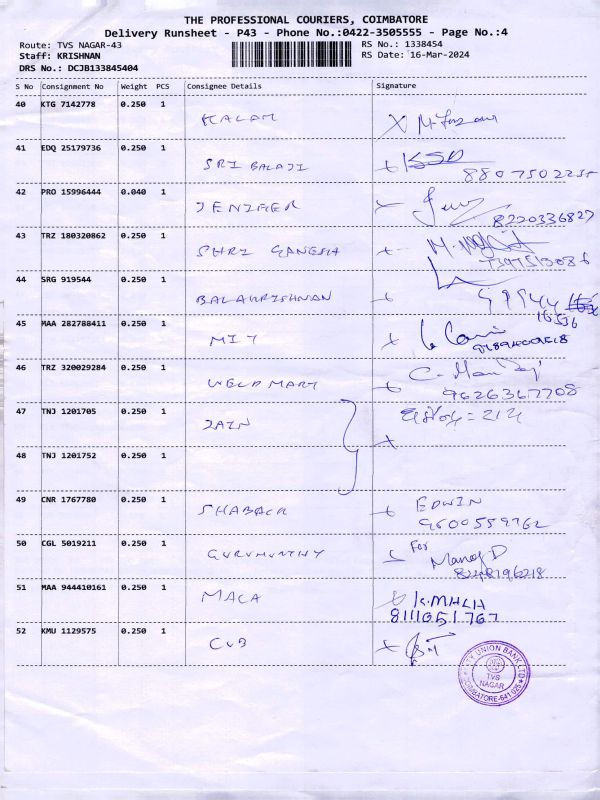 THE PROFESSIONAL COURIERS, COIMBATORE
Delivery Runsheet - P43 - Phone No.:0422-3505555 - Page No.:4
Route: TVS NAGAR-43 RS No.: 1338454
Staff: KRISHNAN RS Date: 16-Mar-2024
DRS No.: DCJB133845404
S No Consignment No Weight PCS Consignee Details Signature
40 KTG 7142778 0.250 1
KALAM
41 EDQ 25179736 0.250 1
SRI BALAJI KSD
42 PRO 15996444 0.040 1
JENIFER
8220336827
43 TRZ 180320862 0.250 1
SHRI GANESH
44 SRG 919544 0.250 1
BALAKRISHNAN
16536
45 MAA 282788411 0.250 1
MIT
46 TRZ 320029284 0.250 1
WELD MART
9626367708
47 TNJ 1201705 0.250 1
JAIN
48 TNJ 1201752 0.250 1
49 CNR 1767780 0.250 1
EDWIN
9600559762
50 CGL 5019211 0.250 1
GURUMURTHY For
Manoj D
51 MAA 944410161 0.250 1
MACA
8111051767
52 KMU 1129575 0.250 1
CUB
CITY UNION BANK LTD
TVS
NAGAR
COIMBATORE-641 025